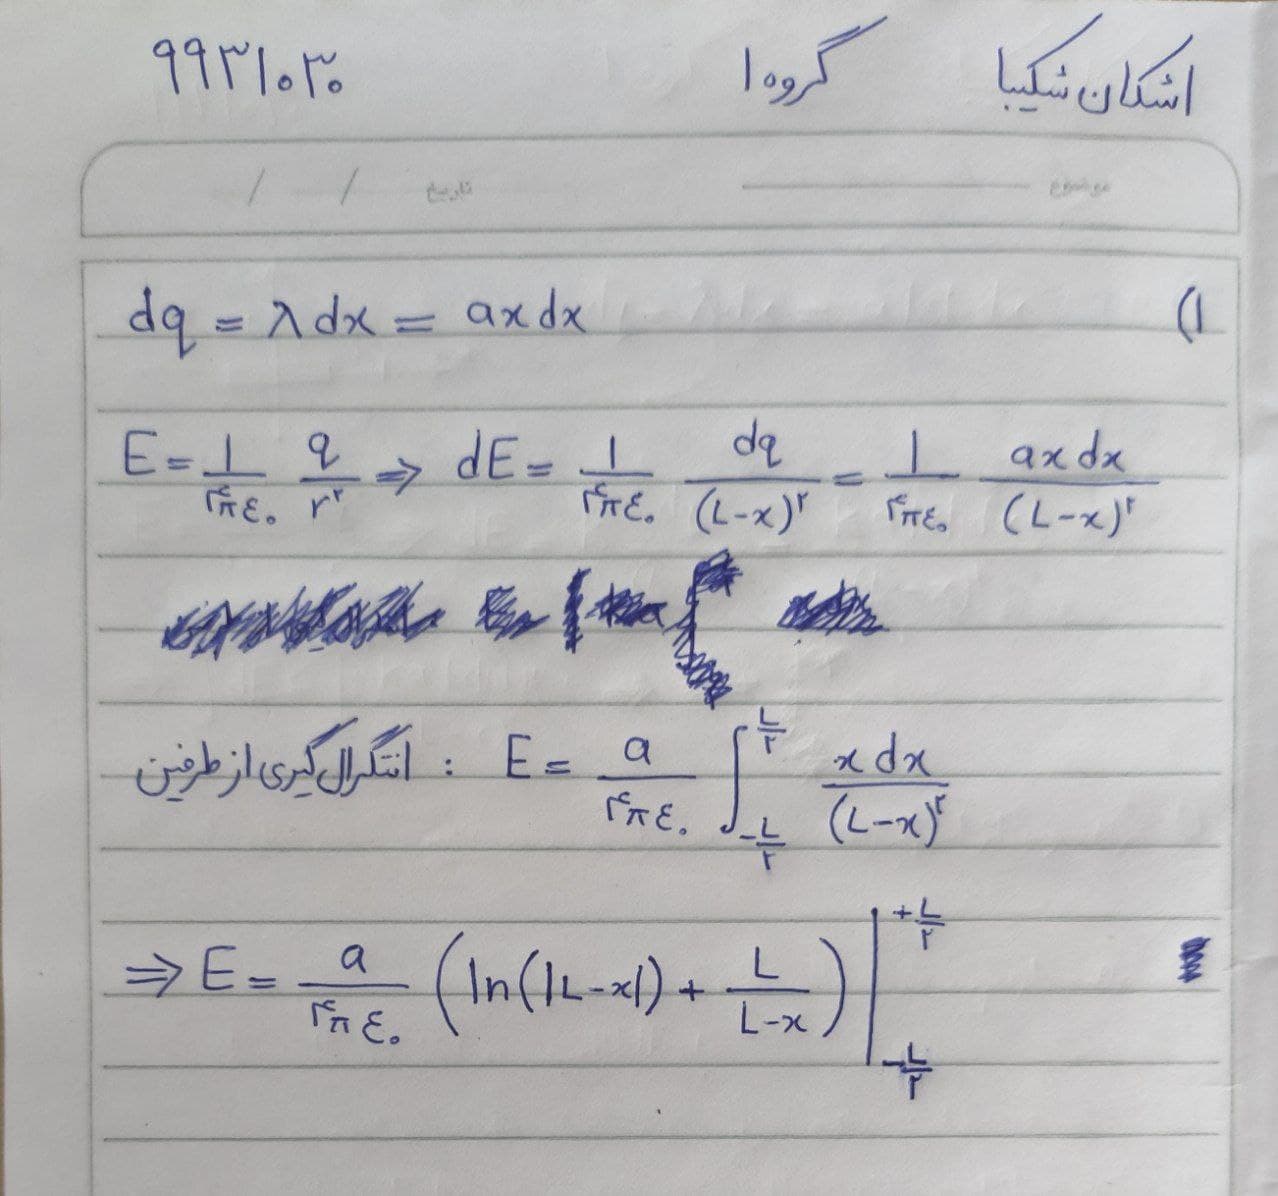 اشکان شکیبا گروه ۱ ۹۹۳۱۰۳۰
موضوع تاریخ / /
۱) dq = λ dx = ax dx
E = ۱/۴πε۰ q/r^۲ ⇒ dE = ۱/۴πε۰ dq/(L-x)^۲ = ۱/۴πε۰ ax dx/(L-x)^۲
انتگرال گیری از طرفین : E = a/۴πε۰ ∫_{-L/۲}^{L/۲} x dx/(L-x)^۲
⇒ E = a/۴πε۰ (ln(|L-x|) + L/L-x) |_{-L/۲}^{+L/۲}